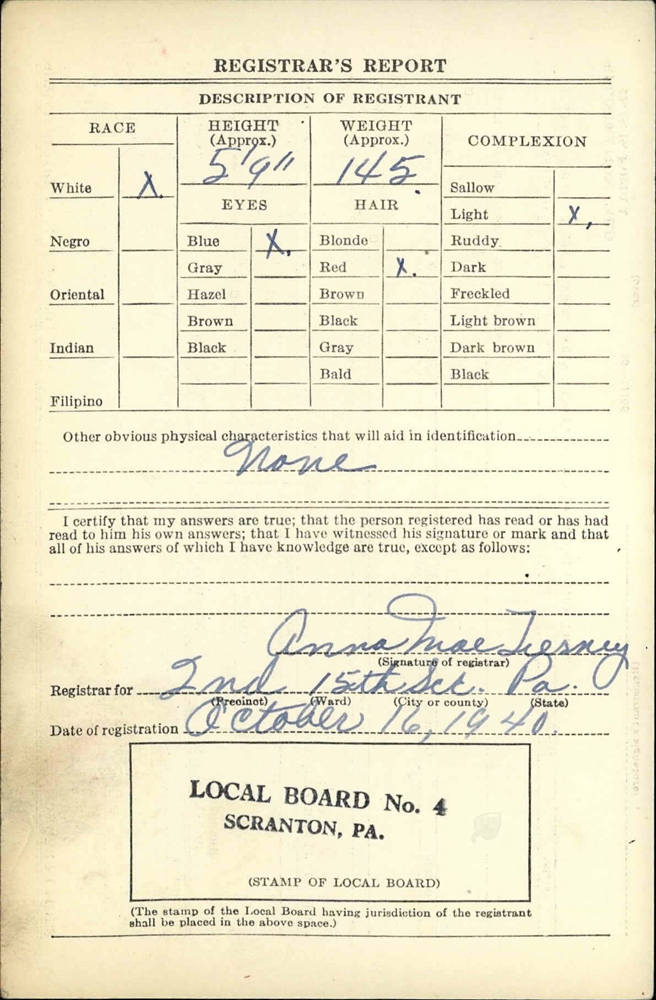 REGISTRAR'S REPORT
DESCRIPTION OF REGISTRANT
RACE
HEIGHT (Approx.)
WEIGHT (Approx.)
COMPLEXION
5'9"
145
White X
EYES
HAIR
Sallow
Light X
Negro
Blue X
Blonde
Ruddy
Gray
Red X
Dark
Oriental
Hazel
Brown
Freckled
Brown
Black
Light brown
Indian
Black
Gray
Dark brown
Bald
Black
Filipino
Other obvious physical characteristics that will aid in identification
None
I certify that my answers are true; that the person registered has read or has had
read to him his own answers; that I have witnessed his signature or mark and that
all of his answers of which I have knowledge are true, except as follows:
Anna Mae Tierney
(Signature of registrar)
Registrar for 2nd 15th Scr. Pa.
(Precinct) (Ward) (City or county) (State)
Date of registration October 16, 1940.
LOCAL BOARD No. 4
SCRANTON, PA.
(STAMP OF LOCAL BOARD)
(The stamp of the Local Board having jurisdiction of the registrant
shall be placed in the above space.)